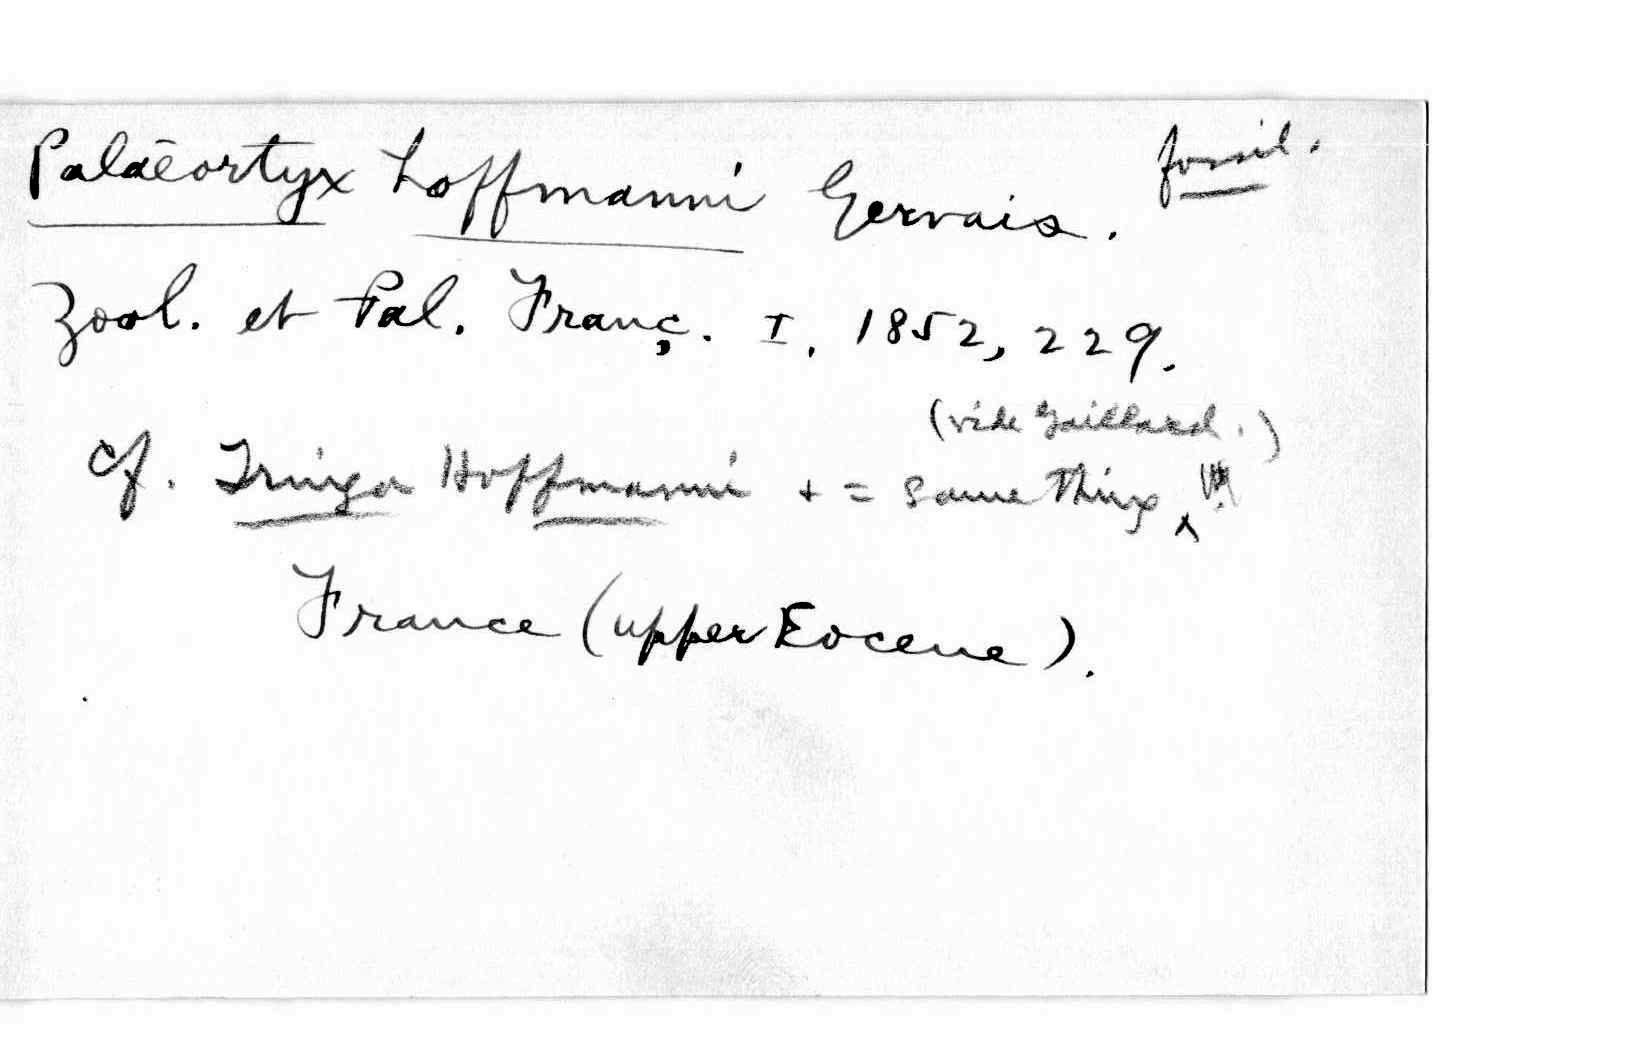 Palaeortyx hoffmanni Gervais. fossil.
Zool. et Pal. Franç. I, 1852, 229.
(vide Gaillard.)
cf. Tringa Hoffmanni + = same thing ^ !!!
France (upper Eocene).